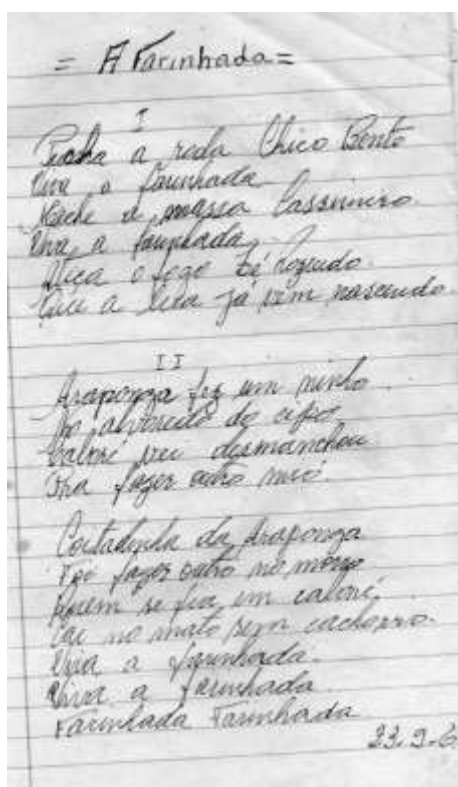 = A Farinhada =
I
Puxa a roda Chico Bento
Viva a farinhada
Mexe a massa Cassimiro
Viva a farinhada
Atiça o fogo Zé Rozendo
Que a lua já vem nascendo
II
Araponga fez um ninho
No alvoredo do cipó
Caboré veu desmanchou
Pra fazer outro mió.
Coitadinha da Araponga
Foi fazer outro no morro
Quem se fia em caboré,
Cai no mato sem cachorro.
Viva a farinhada.
Viva a farinhada
Farinhada Farinhada